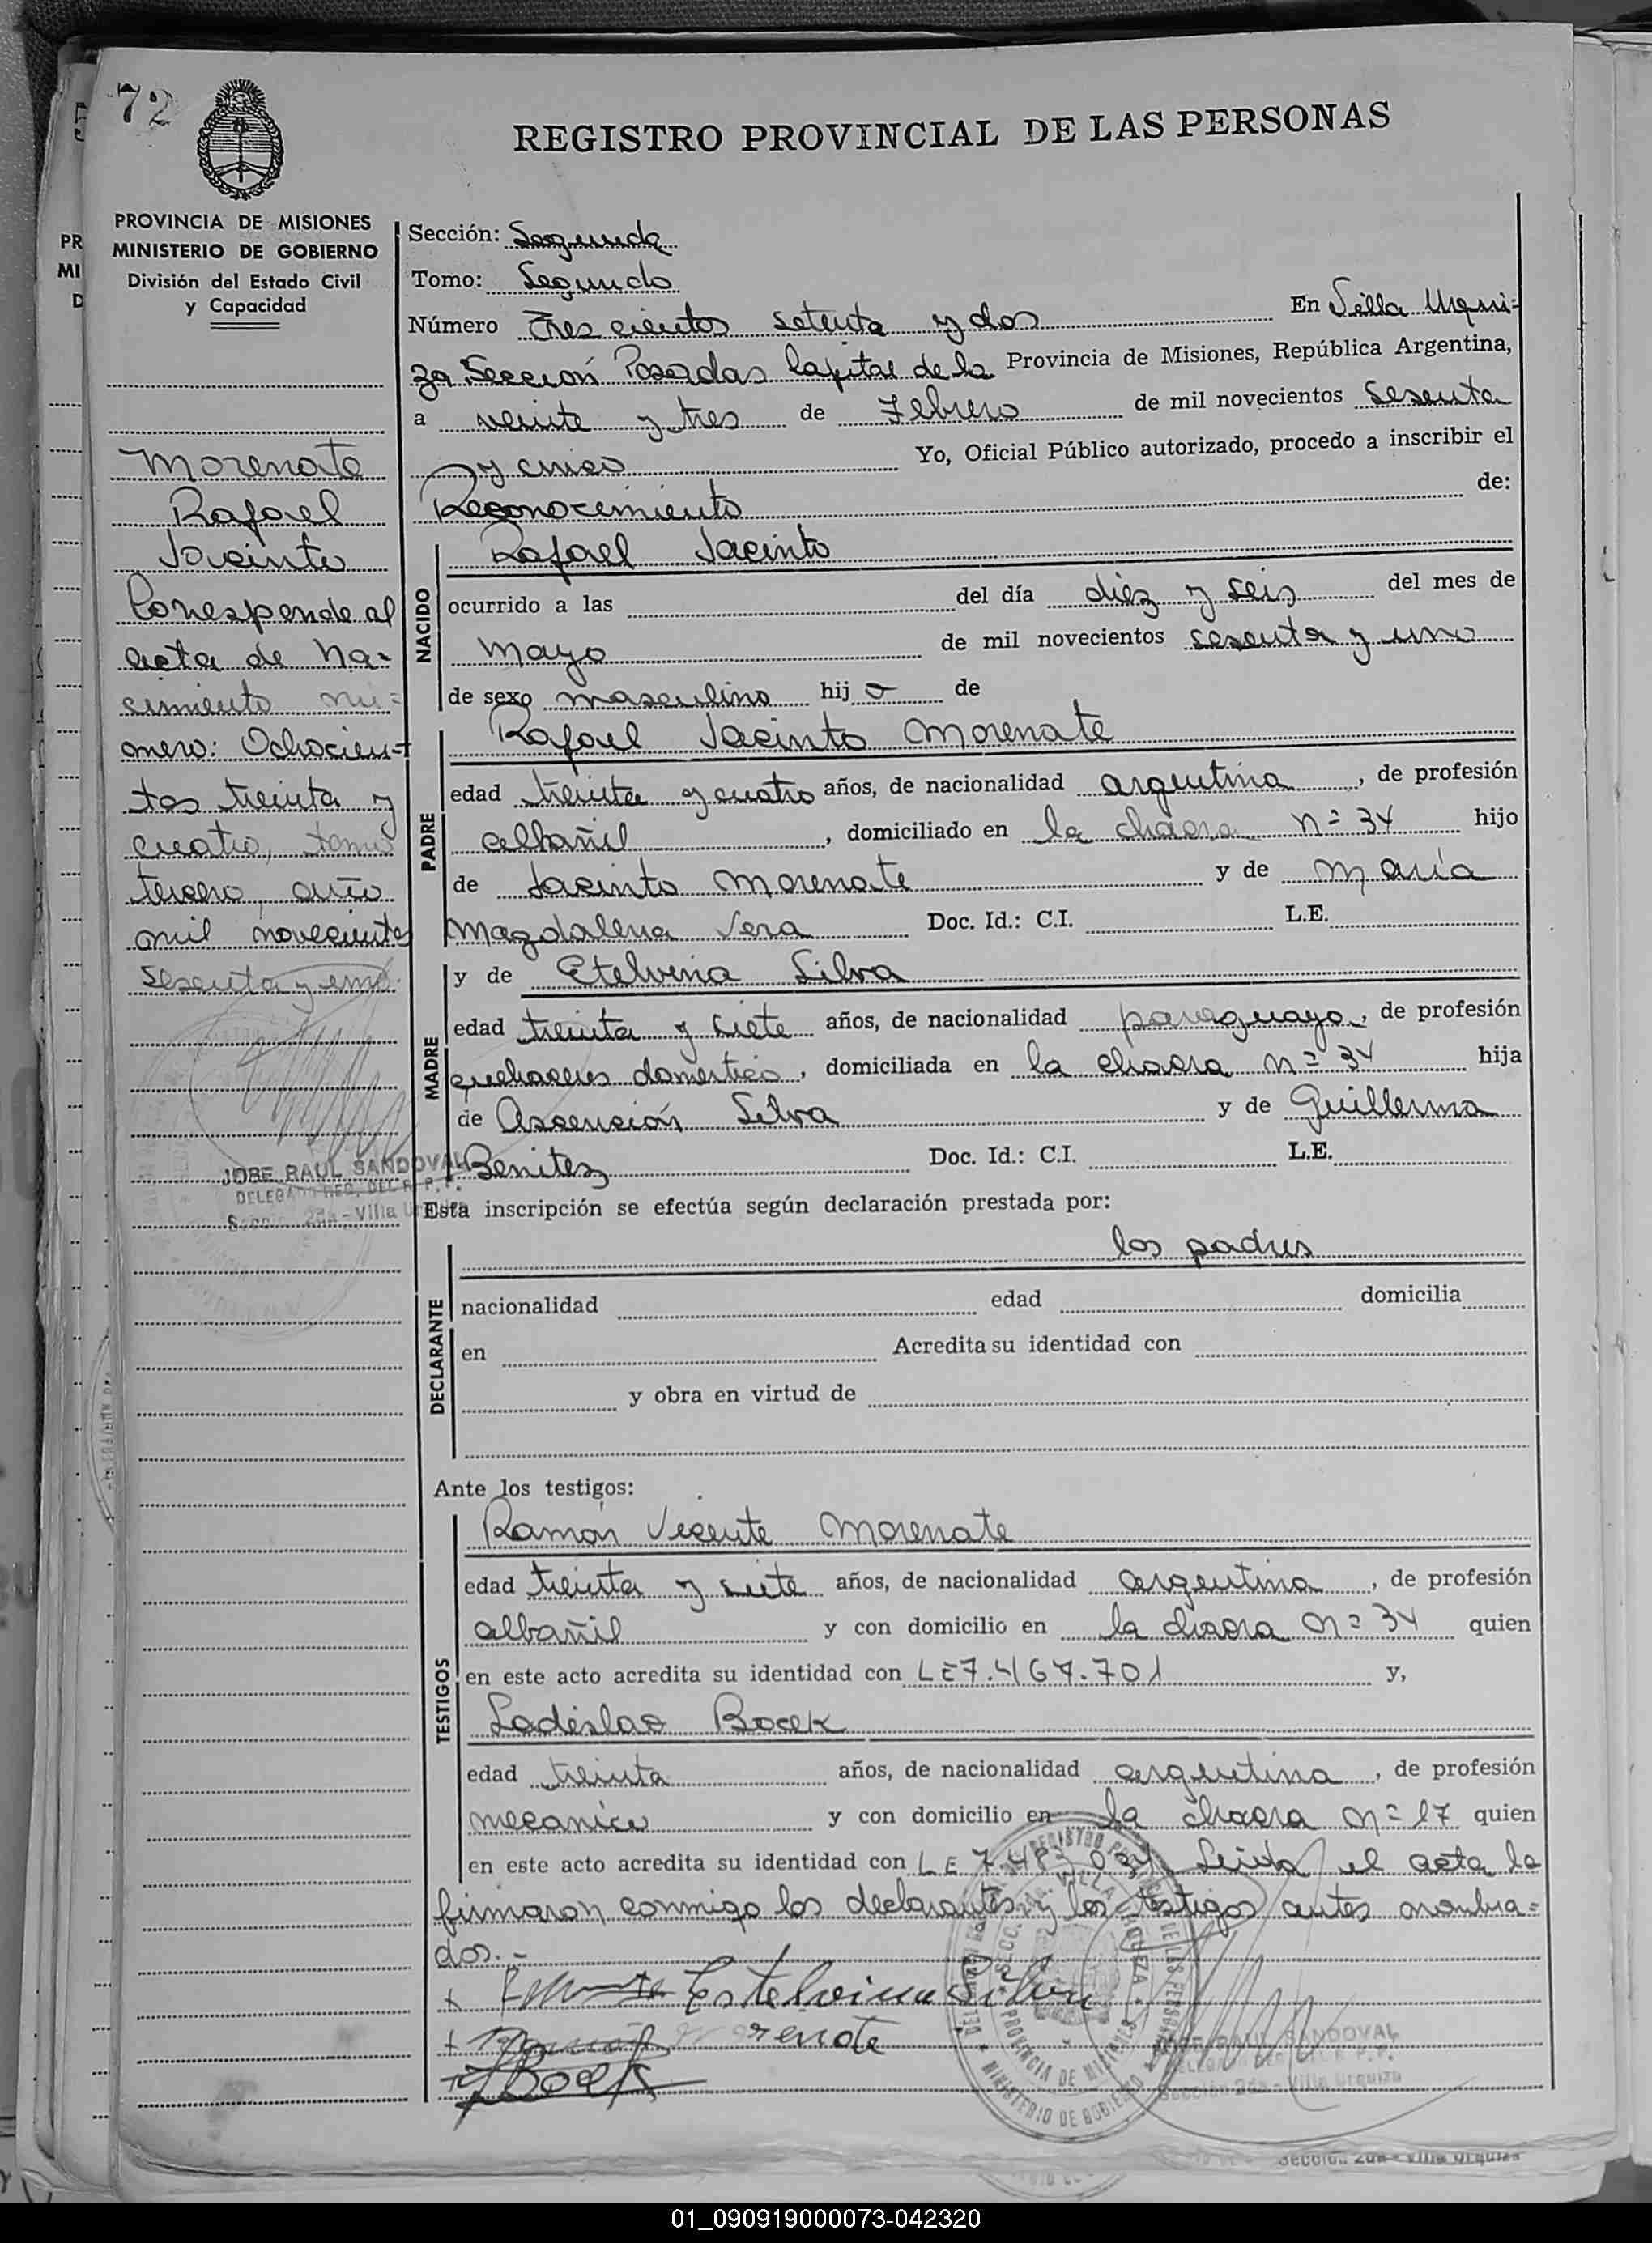 72
REGISTRO PROVINCIAL DE LAS PERSONAS
PROVINCIA DE MISIONES
MINISTERIO DE GOBIERNO
División del Estado Civil
y Capacidad
Morenate
Rafael
Jacinto
Corresponde al
acta de na-
cimiento nú-
mero: Ochocien-
tos treinta y
cuatro, tomo
tercero, año
mil novecientos
sesenta y uno.
JOSE RAUL SANDOVAL
DELEGADO REG. DEL R. P. P.
Sección 2da - Villa Urquiza
Sección: Segunda
Tomo: Segundo
Número Trescientos setenta y dos En Villa Urqui-
za Sección Posadas Capital de la Provincia de Misiones, República Argentina,
a veinte y tres de Febrero de mil novecientos sesenta
y cinco Yo, Oficial Público autorizado, procedo a inscribir el
Reconocimiento de:
NACIDO
Rafael Jacinto
ocurrido a las del día diez y seis del mes de
mayo de mil novecientos sesenta y uno
de sexo masculino hijo de
PADRE
Rafael Jacinto Morenate
edad treinta y cuatro años, de nacionalidad argentina, de profesión
albañil, domiciliado en la chacra nº 34 hijo
de Jacinto Morenate y de María
Magdalena Vera Doc. Id.: C.I. L.E.
MADRE
y de Etelvina Silva
edad treinta y siete años, de nacionalidad paraguaya, de profesión
quehaceres domésticos, domiciliada en la chacra nº 34 hija
de Ascensión Silva y de Guillerma
Benitez Doc. Id.: C.I. L.E.
Esta inscripción se efectúa según declaración prestada por:
DECLARANTE
los padres
nacionalidad edad domicilia
en Acredita su identidad con
y obra en virtud de
Ante los testigos:
TESTIGOS
Ramón Vicente Morenate
edad treinta y siete años, de nacionalidad argentina, de profesión
albañil y con domicilio en la chacra nº 34 quien
en este acto acredita su identidad con LE 7.467.701 y,
Ladislao Bocek
edad treinta años, de nacionalidad argentina, de profesión
mecanico y con domicilio en la chacra nº 17 quien
en este acto acredita su identidad con LE Leida el acta la
firmaron conmigo los declarantes y los testigos antes nombra-
dos.-
Estelvina Silva
Morenate
Bocek
REGISTRO PROVINCIAL DE LAS PERSONAS
SECC. 2da. VILLA URQUIZA
PROVINCIA DE MISIONES
MINISTERIO DE GOBIERNO
JOSE RAUL SANDOVAL
DELEGADO REG. DEL R. P. P.
Sección 2da - Villa Urquiza
Sección 2da - Villa Urquiza
01_090919000073-042320